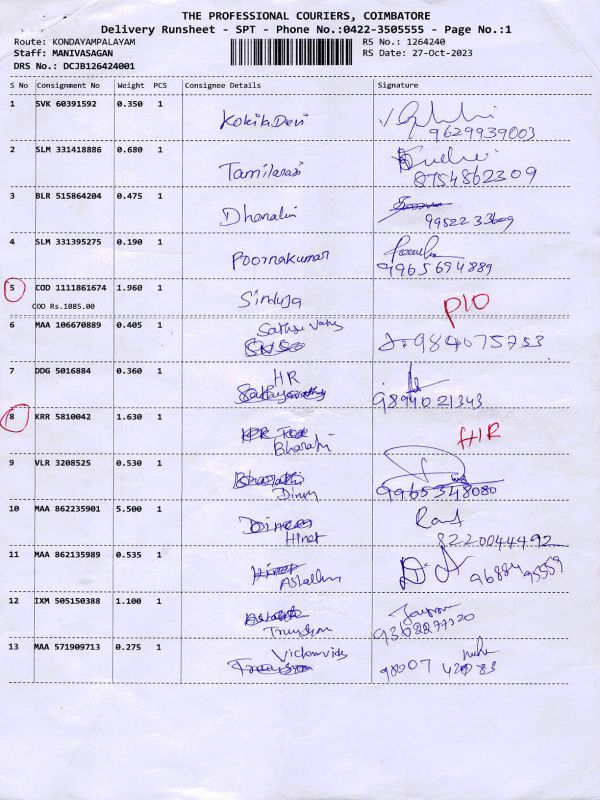 THE PROFESSIONAL COURIERS, COIMBATORE
Delivery Runsheet - SPT - Phone No.:0422-3505555 - Page No.:1
Route: KONDAYAMPALAYAM RS No.: 1264240
Staff: MANIVASAGAN RS Date: 27-Oct-2023
DRS No.: DCJB126424001
S No Consignment No Weight PCS Consignee Details Signature
1 SVK 60391592 0.350 1 Kokila Devi
9629939003
2 SLM 331418886 0.680 1 Tamilarasi
8754862309
3 BLR 515864204 0.475 1 Dhanalin
9952233609
4 SLM 331395275 0.190 1 Poornakumar
9965694889
5 COD 1111861674 1.960 1 Sinduja P10
COD Rs.1085.00
6 MAA 106670889 0.405 1 Sathya
984075753
7 DDG 5016884 0.360 1 HR
9894021343
8 KRR 5810042 1.630 1 HR
Bharathi
9 VLR 3208525 0.530 1
9965348080
10 MAA 862235901 5.500 1
Hinet 8220044492
11 MAA 862135989 0.535 1
12 IXM 505150388 1.100 1
9302277320
13 MAA 571909713 0.275 1